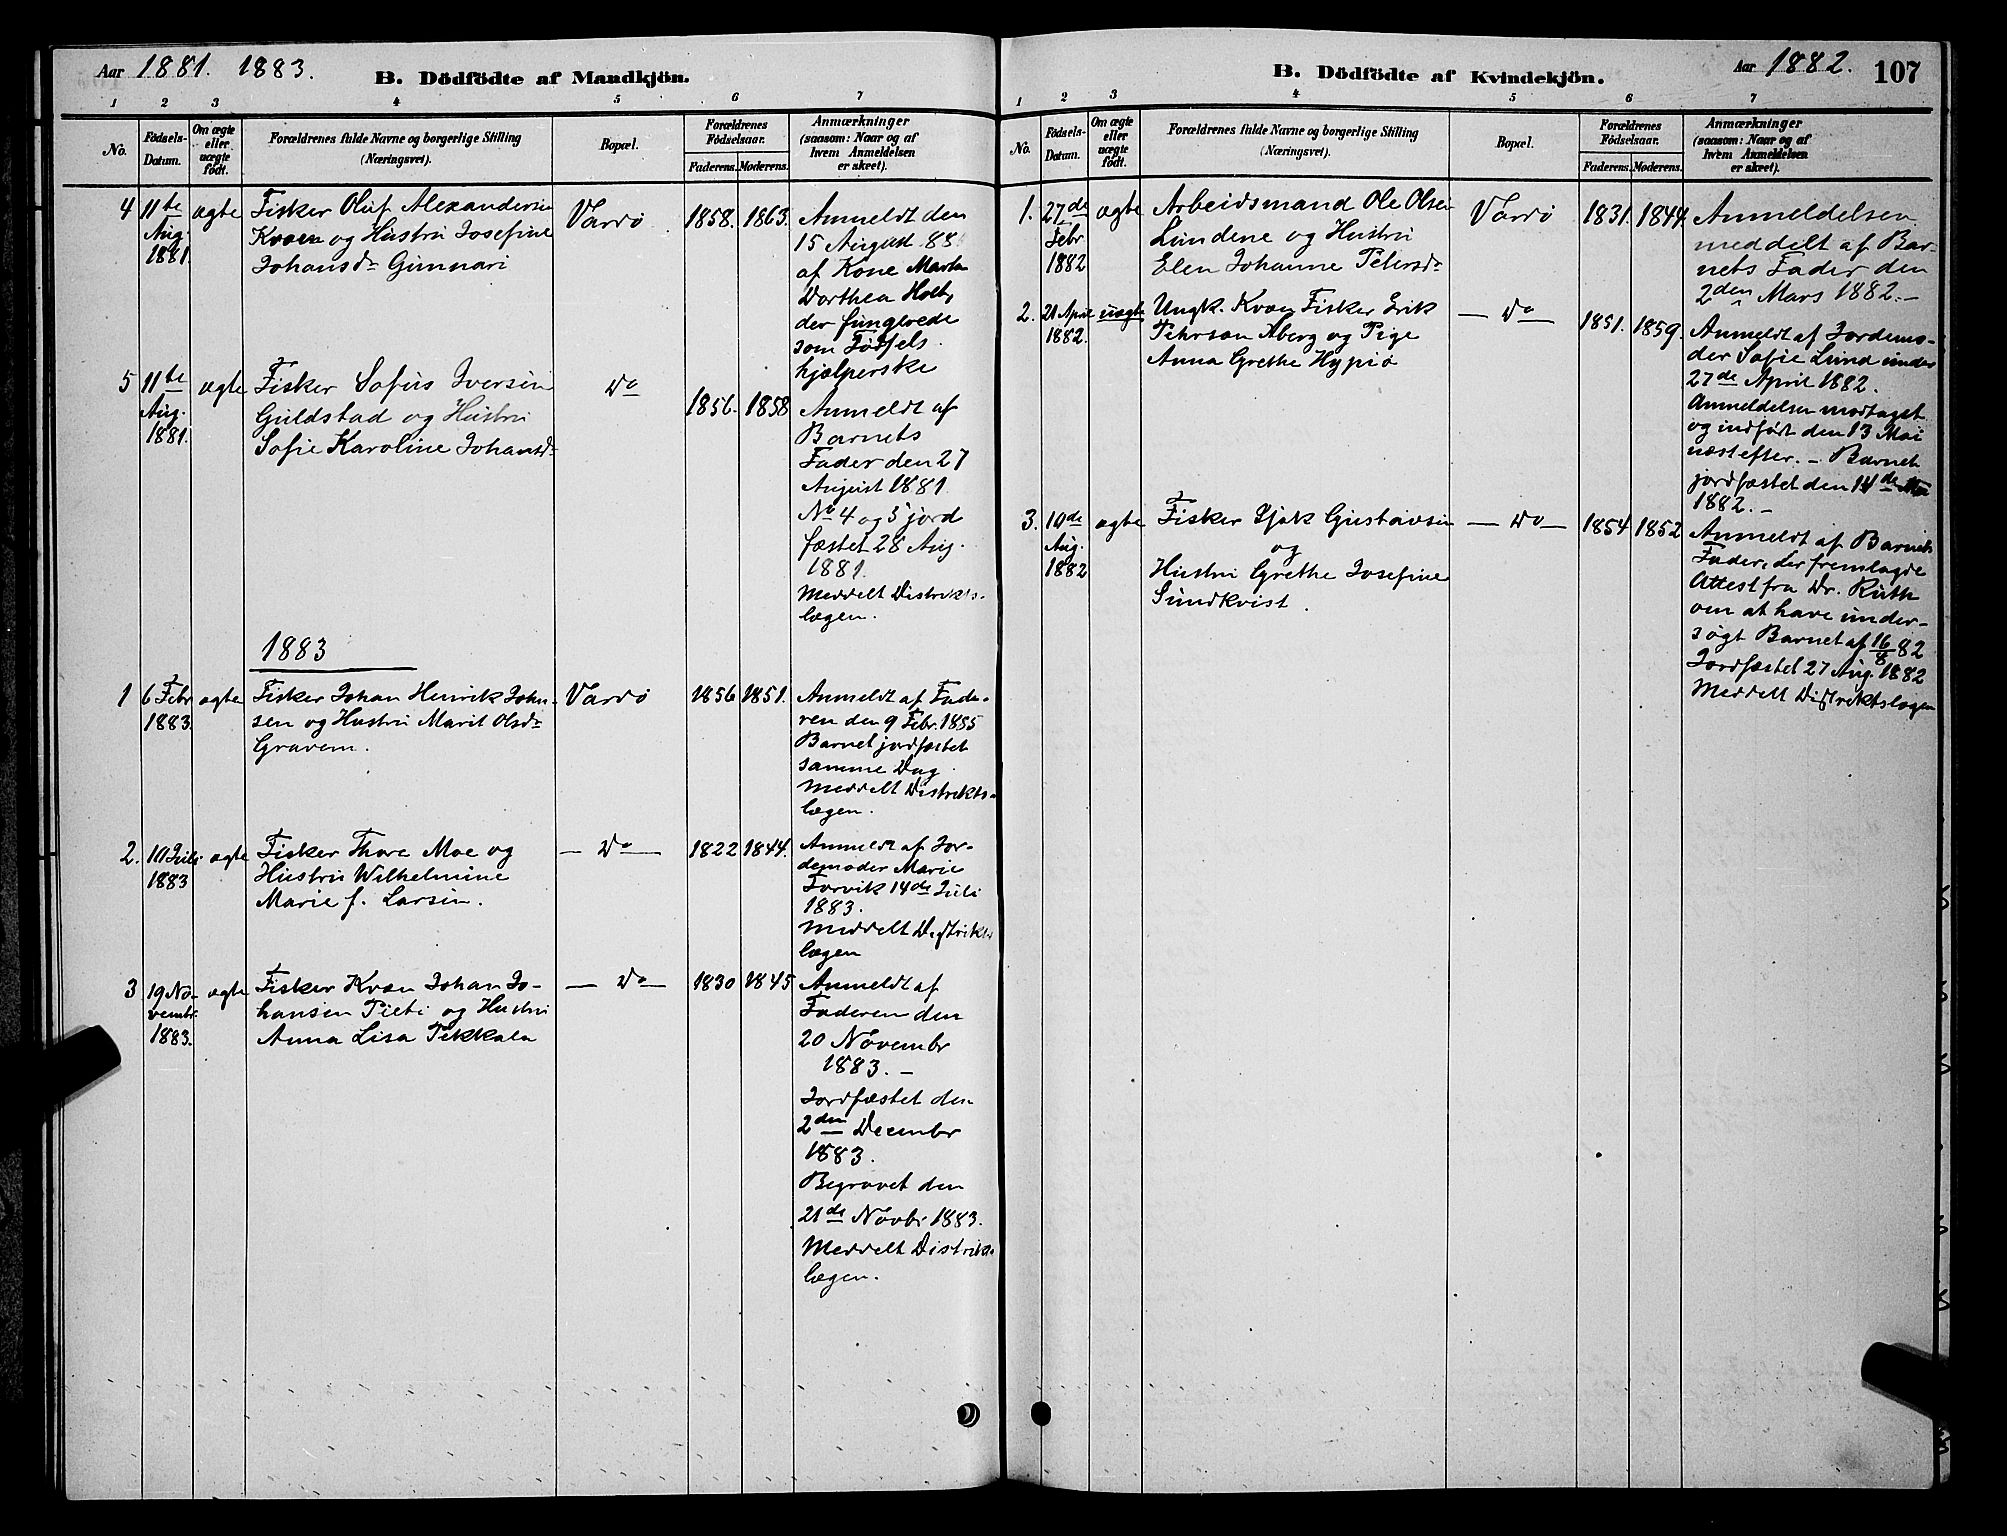 Aar 1881. 1883.
B. Dödfödte af Mandkjön.
1 2 3 4 5 6 7
No.
Födsels-
Datum.
Om ægte
eller
uægte
födt.
Forældrenes fulde Navne og borgerlige Stilling
(Næringsvei).
Bopæl.
Forældrenes
Födselsaar.
Faderens. Moderens.
Anmærkninger
(saasom: Naar og af
hvem Anmeldelsen
er skeet).
4 11te Aug. 1881. ægte
Fisker Oluf Alexandersen
Kvæn og Hustru Josefine
Johansdr Gunnari
Vardö 1858. 1863.
Anmeldt den
15 August
af Kone Marta
Dorthea
der fungerede
som Födsels
hjælperske
5 11te Aug. 1881. ægte
Fisker Sofus Iversen
Guldstad og Hustru
Sofie Karoline Johansdr
Do 1856. 1858
Anmeldt af
Barnets
Fader den 27
August 1881
No 4 og 5 jord
fæstet 28 Aug.
1881.
Meddelt Distrikts-
lægen.
1883
1 6 Febr 1883. ægte
Fisker Johan Henrik Johan-
sen og Hustru Marit Olsdr
Gravem.
Vardö 1856 1851.
Anmeldt af Fade-
ren den 9 Febr. 1885
Barnet jordfæstet
samme Dag
Meddelt Distrikts-
lægen.
2. 10 Juli 1883 ægte
Fisker Thore Moe og
Hustru Wilhelmine
Marie f. Larsen.
— Do — 1822 1844.
Anmeldt af Jor-
demoder Marie
Forvik 14de Juli
1883.
Meddelt Distrikts
lægen
3 19 No-
vembr. 1883. ægte
Fisker Kvæn Johan Jo-
hansen Pieti og Hustru
Anna Lisa Pekkala
— Do — 1830 1845
Anmeldt af
Faderen den
20 Novembr
1883. —
Jordfæstet den
2den Decembr
1883.
Begravet den
21de Novbr 1883.
Meddelt Distrikts
lægen.
B. Dödfödte af Kvindekjön.
Aar 1882. 107
1 2 3 4 5 6 7
No.
Födsels-
Datum.
Om ægte
eller
uægte
födt.
Forældrenes fulde Navne og borgerlige Stilling
(Næringsvei).
Bopæl.
Forældrenes
Födselsaar.
Faderens. Moderens.
Anmærkninger
(saasom: Naar og af
hvem Anmeldelsen
er skeet).
1. 27de Febr 1882 ægte
Arbeidsmand Ole Olsen
Lundene og Hustru
Elen Johanne Petersdr
Vardö 1831. 1844.
Anmeldelsen
meddelt af Bar-
nets Fader den
2den Mars 1882. —
2. 21 April 1882. uægte
Ungk. Kvæn Fisker Erik
Pehrson Åberg og Pige
Anna Grethe Hypiö
— Do — 1851. 1859.
Anmeldt af Jordemo-
der Sofie Lund under
27de April 1882.
Anmeldelsen modtaget
og indfört den 13 Mai
næstefter. — Barnet
jordfæstet den 14de Mai
1882. —
3. 10de Aug. 1882 ægte
Fisker Isak Gustavsen
og
Hustru Grethe Josefine
Sundkvist.
— Do — 1854 1852
Anmeldt af Barnets
Fader, der fremlagde
Attest fra Dr. Ruth
om at have under-
sögt Barnet af 16/8 82
Jordfæstet 27 Aug. 1882
Meddelt Distriktslægen